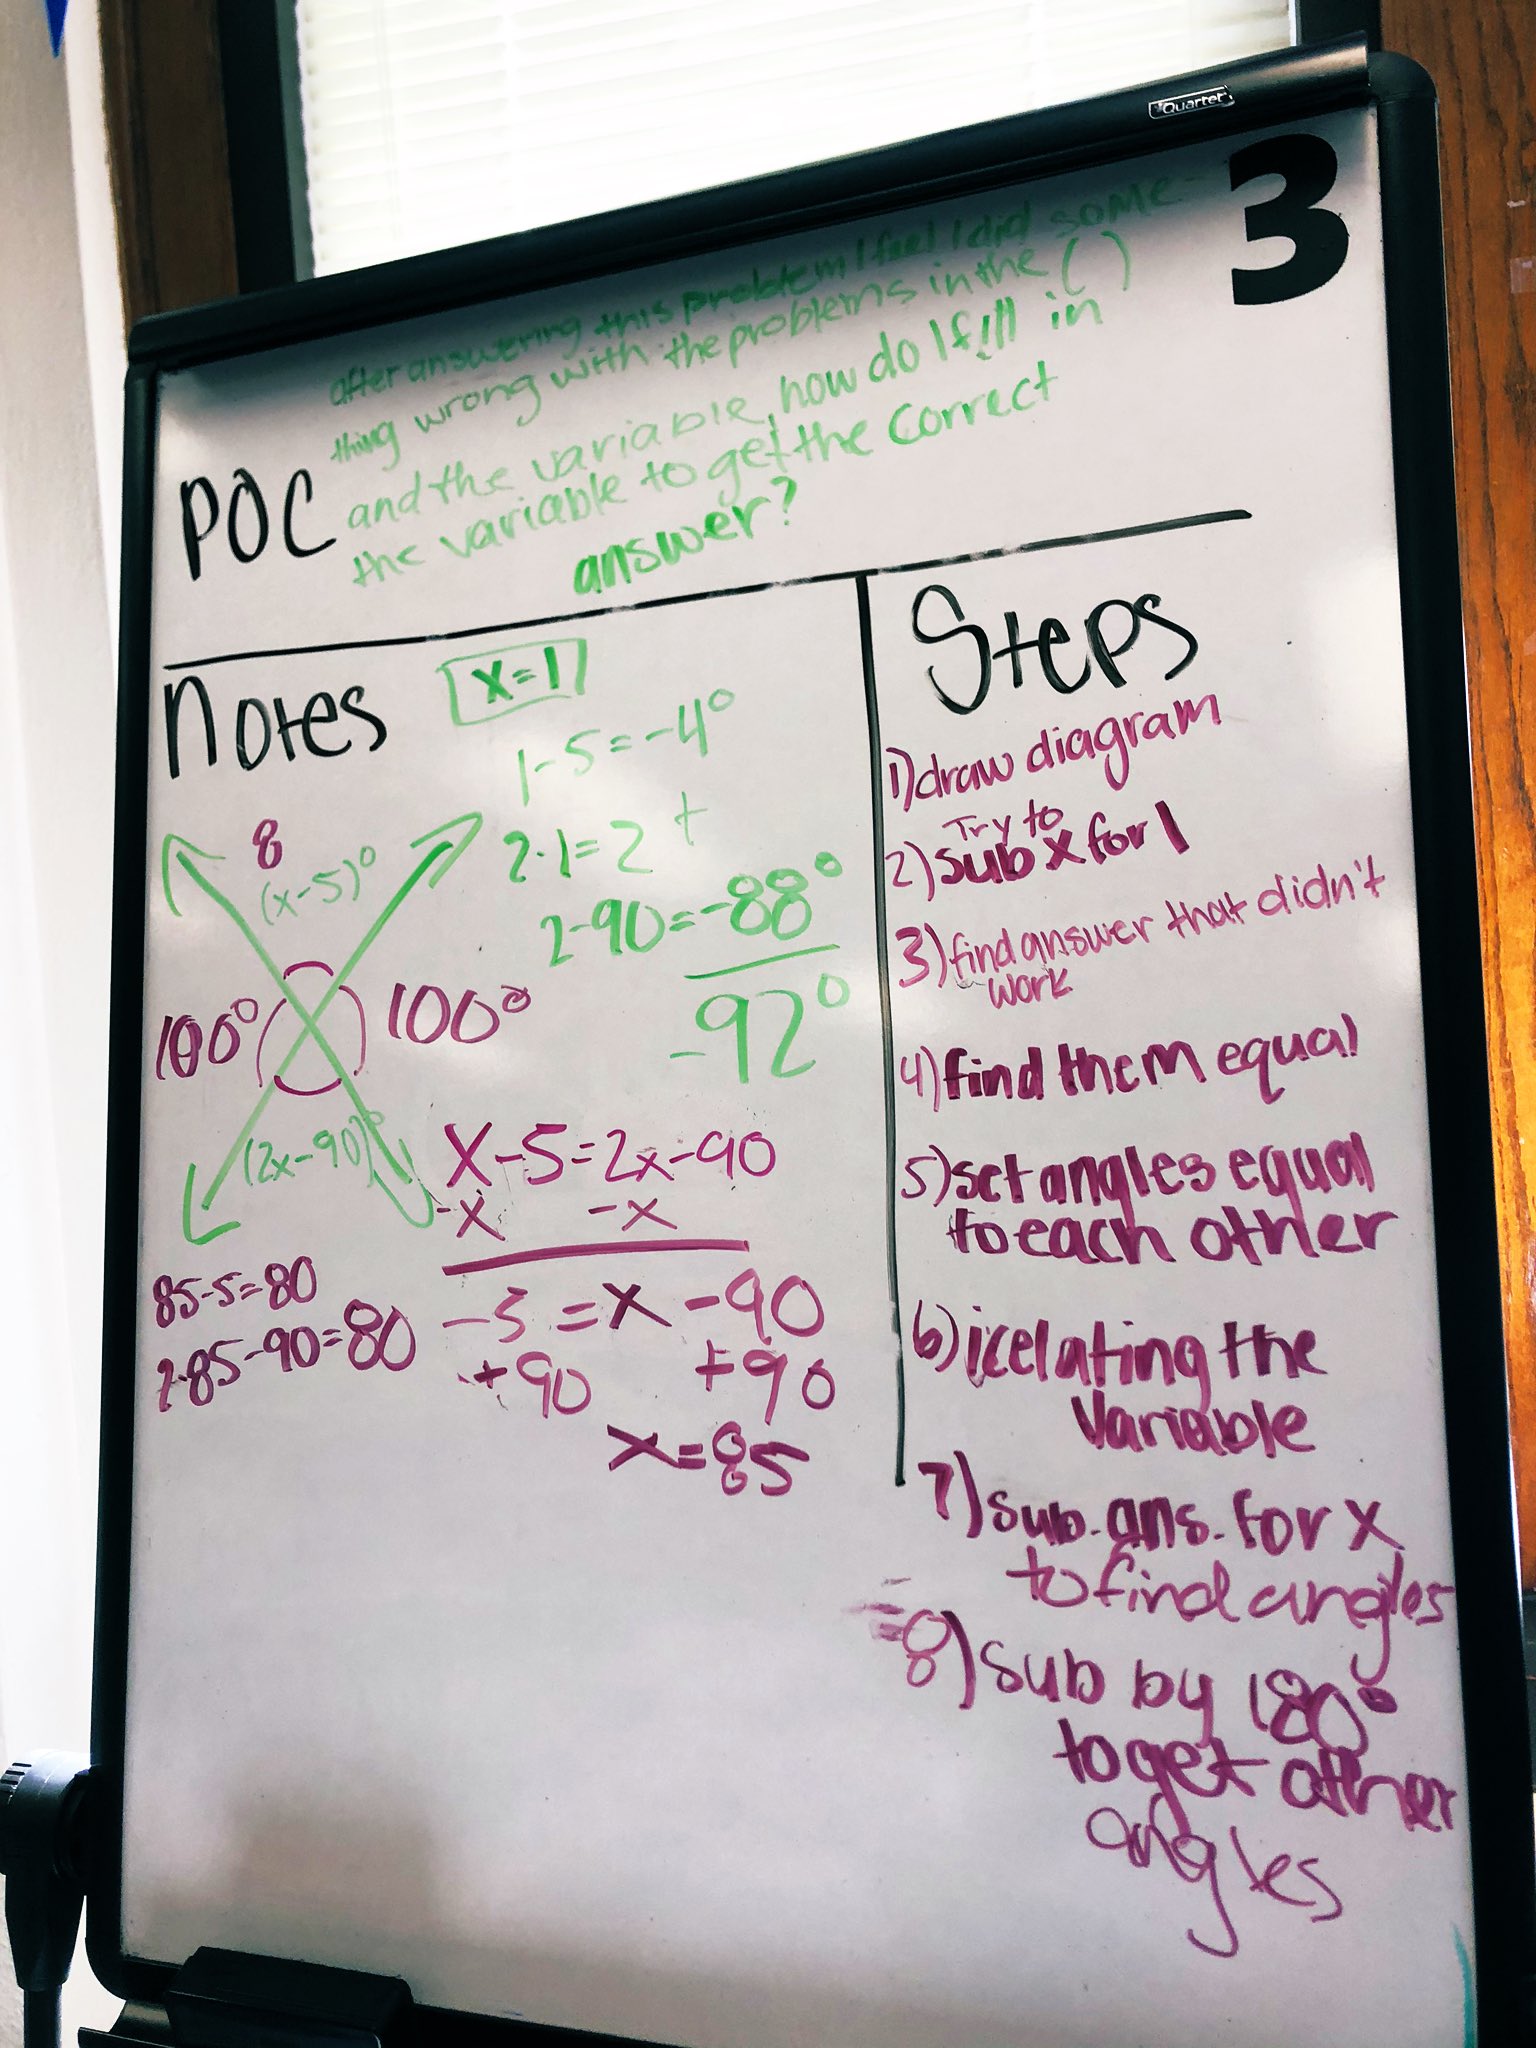 Quartet
3
after answering this problem I feel I did some-
thing wrong with the problems in the ( )
and the variable, how do I fill in
the variable to get the correct
answer?
POC
Notes
x=1
1-5=-4°
2·1=2 +
2-90=-88°
-92°
8
(x-5)°
100°
100°
(2x-90)°
x-5=2x-90
-x -x
-5=x-90
+90 +90
x=85
85-5=80
2·85-90=80
Steps
1)draw diagram
Try to
2)sub x for 1
3)find answer that didn't
work
4)find them equal
5)set angles equal
to each other
6)icelating the
variable
7)sub. ans. for x
to find angles
8)sub by 180°
to get other
angles